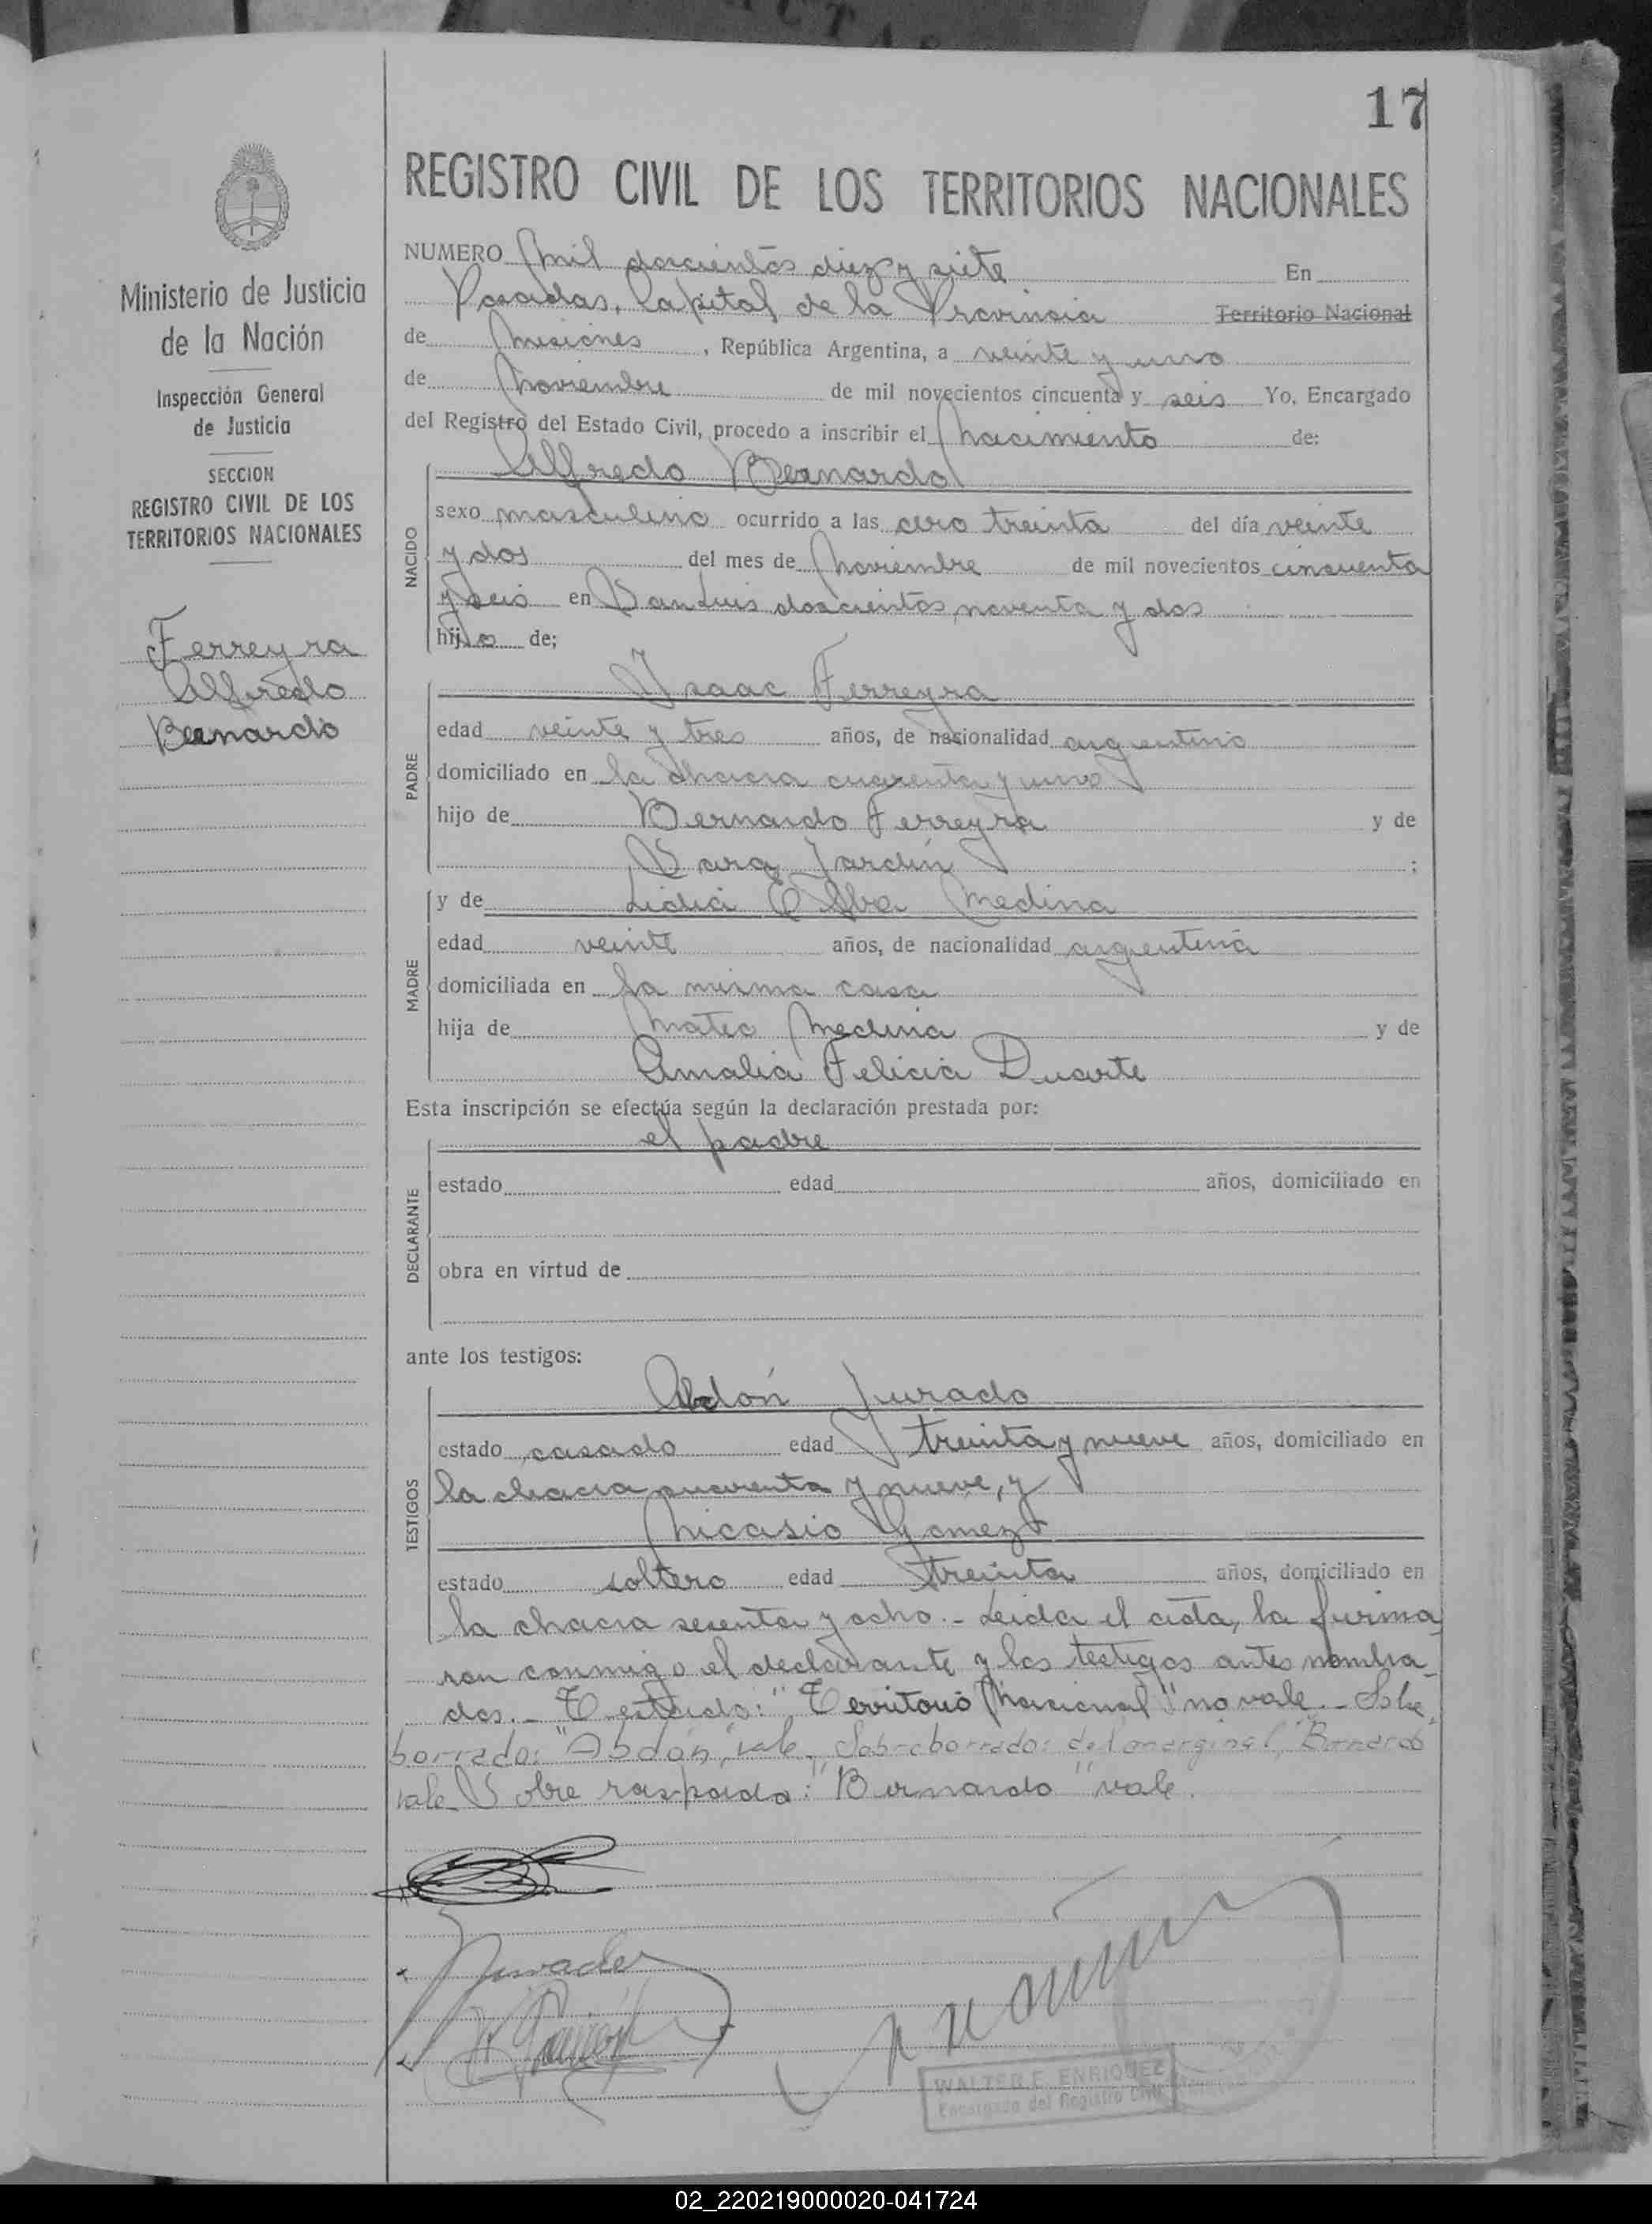 17
REGISTRO CIVIL DE LOS TERRITORIOS NACIONALES
Ministerio de Justicia
de la Nación
Inspección General
de Justicia
SECCION
REGISTRO CIVIL DE LOS
TERRITORIOS NACIONALES
Ferreyra
Alfredo
Bernardo
NUMERO Mil doscientos diez y siete En
Posadas, Capital de la Provincia Territorio Nacional
de Misiones, República Argentina, a veinte y uno
de Noviembre de mil novecientos cincuenta y seis Yo, Encargado
del Registro del Estado Civil, procedo a inscribir el Nacimiento de:
Alfredo Bernardo
NACIDO
sexo masculino ocurrido a las cero treinta del día veinte
y dos del mes de Noviembre de mil novecientos cincuenta
y seis en San Luis doscientos noventa y dos
hijo de;
Isaac Ferreyra
PADRE
edad veinte y tres años, de nacionalidad argentino
domiciliado en la chacra cuarenta y uno
hijo de Bernardo Ferreyra y de
Sara Jardin ;
y de Lidia Elba Medina
MADRE
edad veinte años, de nacionalidad argentina
domiciliada en la misma casa
hija de Mateo Medina y de
Amalia Felicia Duarte
Esta inscripción se efectúa según la declaración prestada por:
el padre
DECLARANTE
estado edad años, domiciliado en
obra en virtud de
ante los testigos:
Abdón Jurado
TESTIGOS
estado casado edad treinta y nueve años, domiciliado en
la chacra cuarenta y nueve, y
Nicasio Gomez
estado soltero edad treinta años, domiciliado en
la chacra sesenta y ocho.- Leida el acta, la firma
ron conmigo el declarante y los testigos antes nombra
dos.- Testado: "Territorio Nacional" no vale.- Sobre
borrado: "Abdón", vale. Sobreborrado: del marginal, "Bernardo"
vale. Sobre raspado: "Bernardo" vale.
Jurado
WALTER E. ENRIQUEZ
Encargado del Registro Civil
02_220219000020-041724